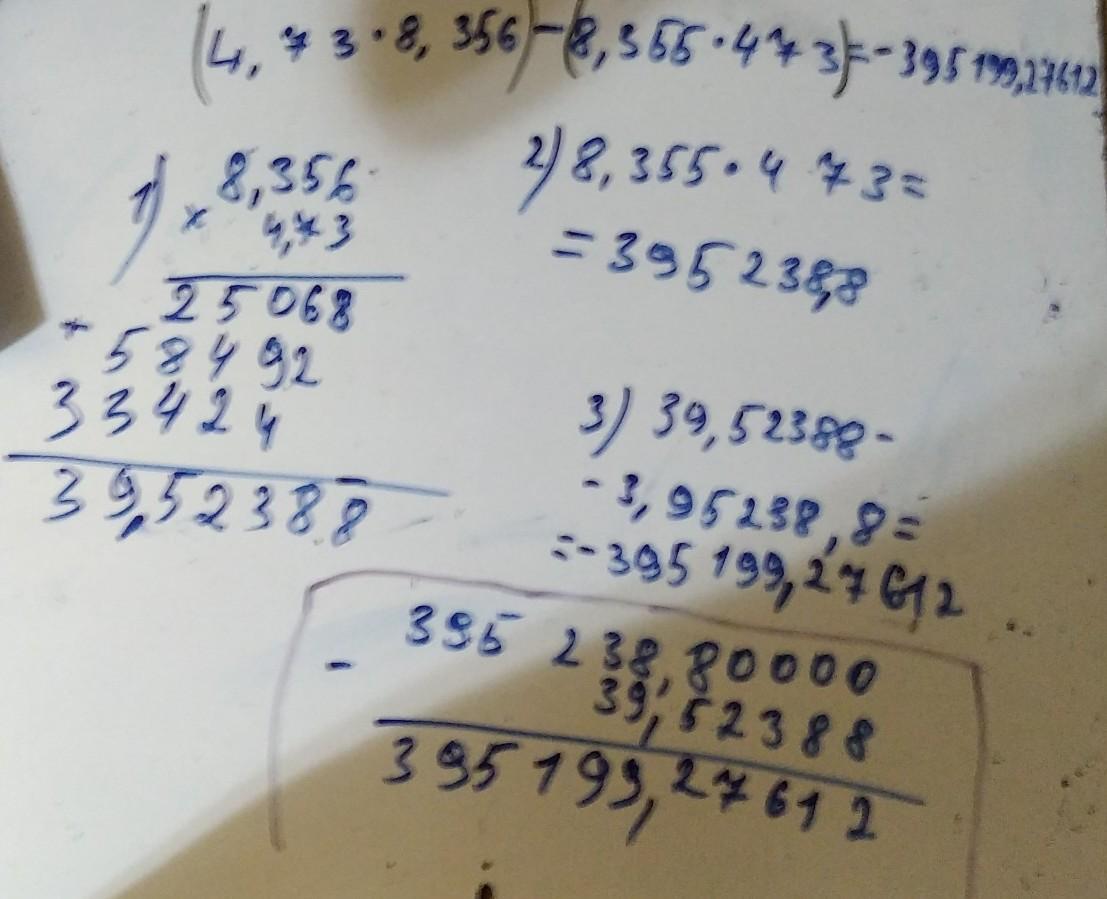 (4,73·8,356)-(8,355·473)=-395199,27612
1) 8,356
× 4,73
25068
+ 58492
33424
39,52388
2) 8,355·473=
=395238,8
3) 39,52388-
-3,95238,8=
=-395199,27612
- 395 238,80000
39,52388
395199,27612